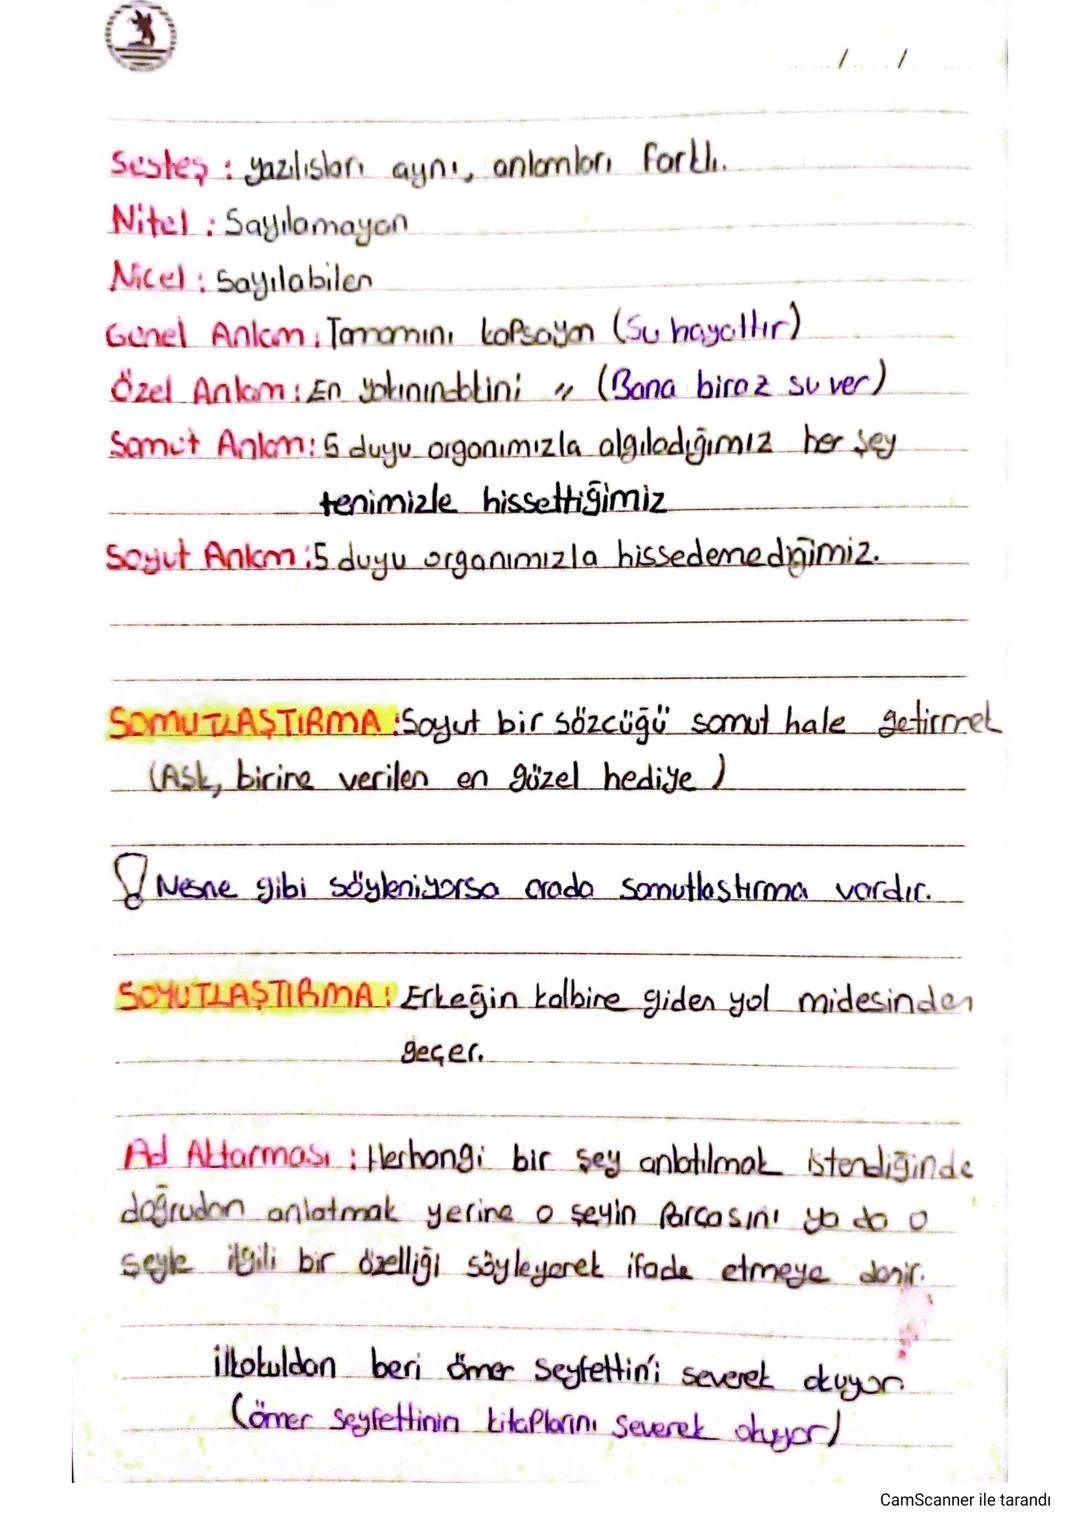 / /
Sesteş : yazılısları aynı, anlamları farklı.
Nitel : Sayılamayan
Nicel : Sayılabilen
Genel Anlam : Tamamını kapsayan (Su hayattır)
Özel Anlam : En yakınındakini " (Bana biraz su ver)
Somut Anlam : 5 duyu organımızla algıladığımız her şey
tenimizle hissettiğimiz
Soyut Anlam : 5 duyu organımızla hissedemediğimiz.
SOMUTLAŞTIRMA : Soyut bir sözcüğü somut hale getirmek
(Aşk, birine verilen en güzel hediye)
! Nesne gibi söyleniyorsa orada somutlastırma vardır.
SOYUTLAŞTIRMA : Erkeğin kalbine giden yol midesinden
geçer.
Ad Aktarması : Herhangi bir şey anlatılmak istendiğinde
doğrudan anlatmak yerine o şeyin parçasını ya da o
şeyle ilgili bir özelliği söyleyerek ifade etmeye denir.
ilkokuldan beri ömer seyfettin'i severek okuyor.
(ömer seyfettinin kitaplarını severek okuyor)
CamScanner ile tarandı